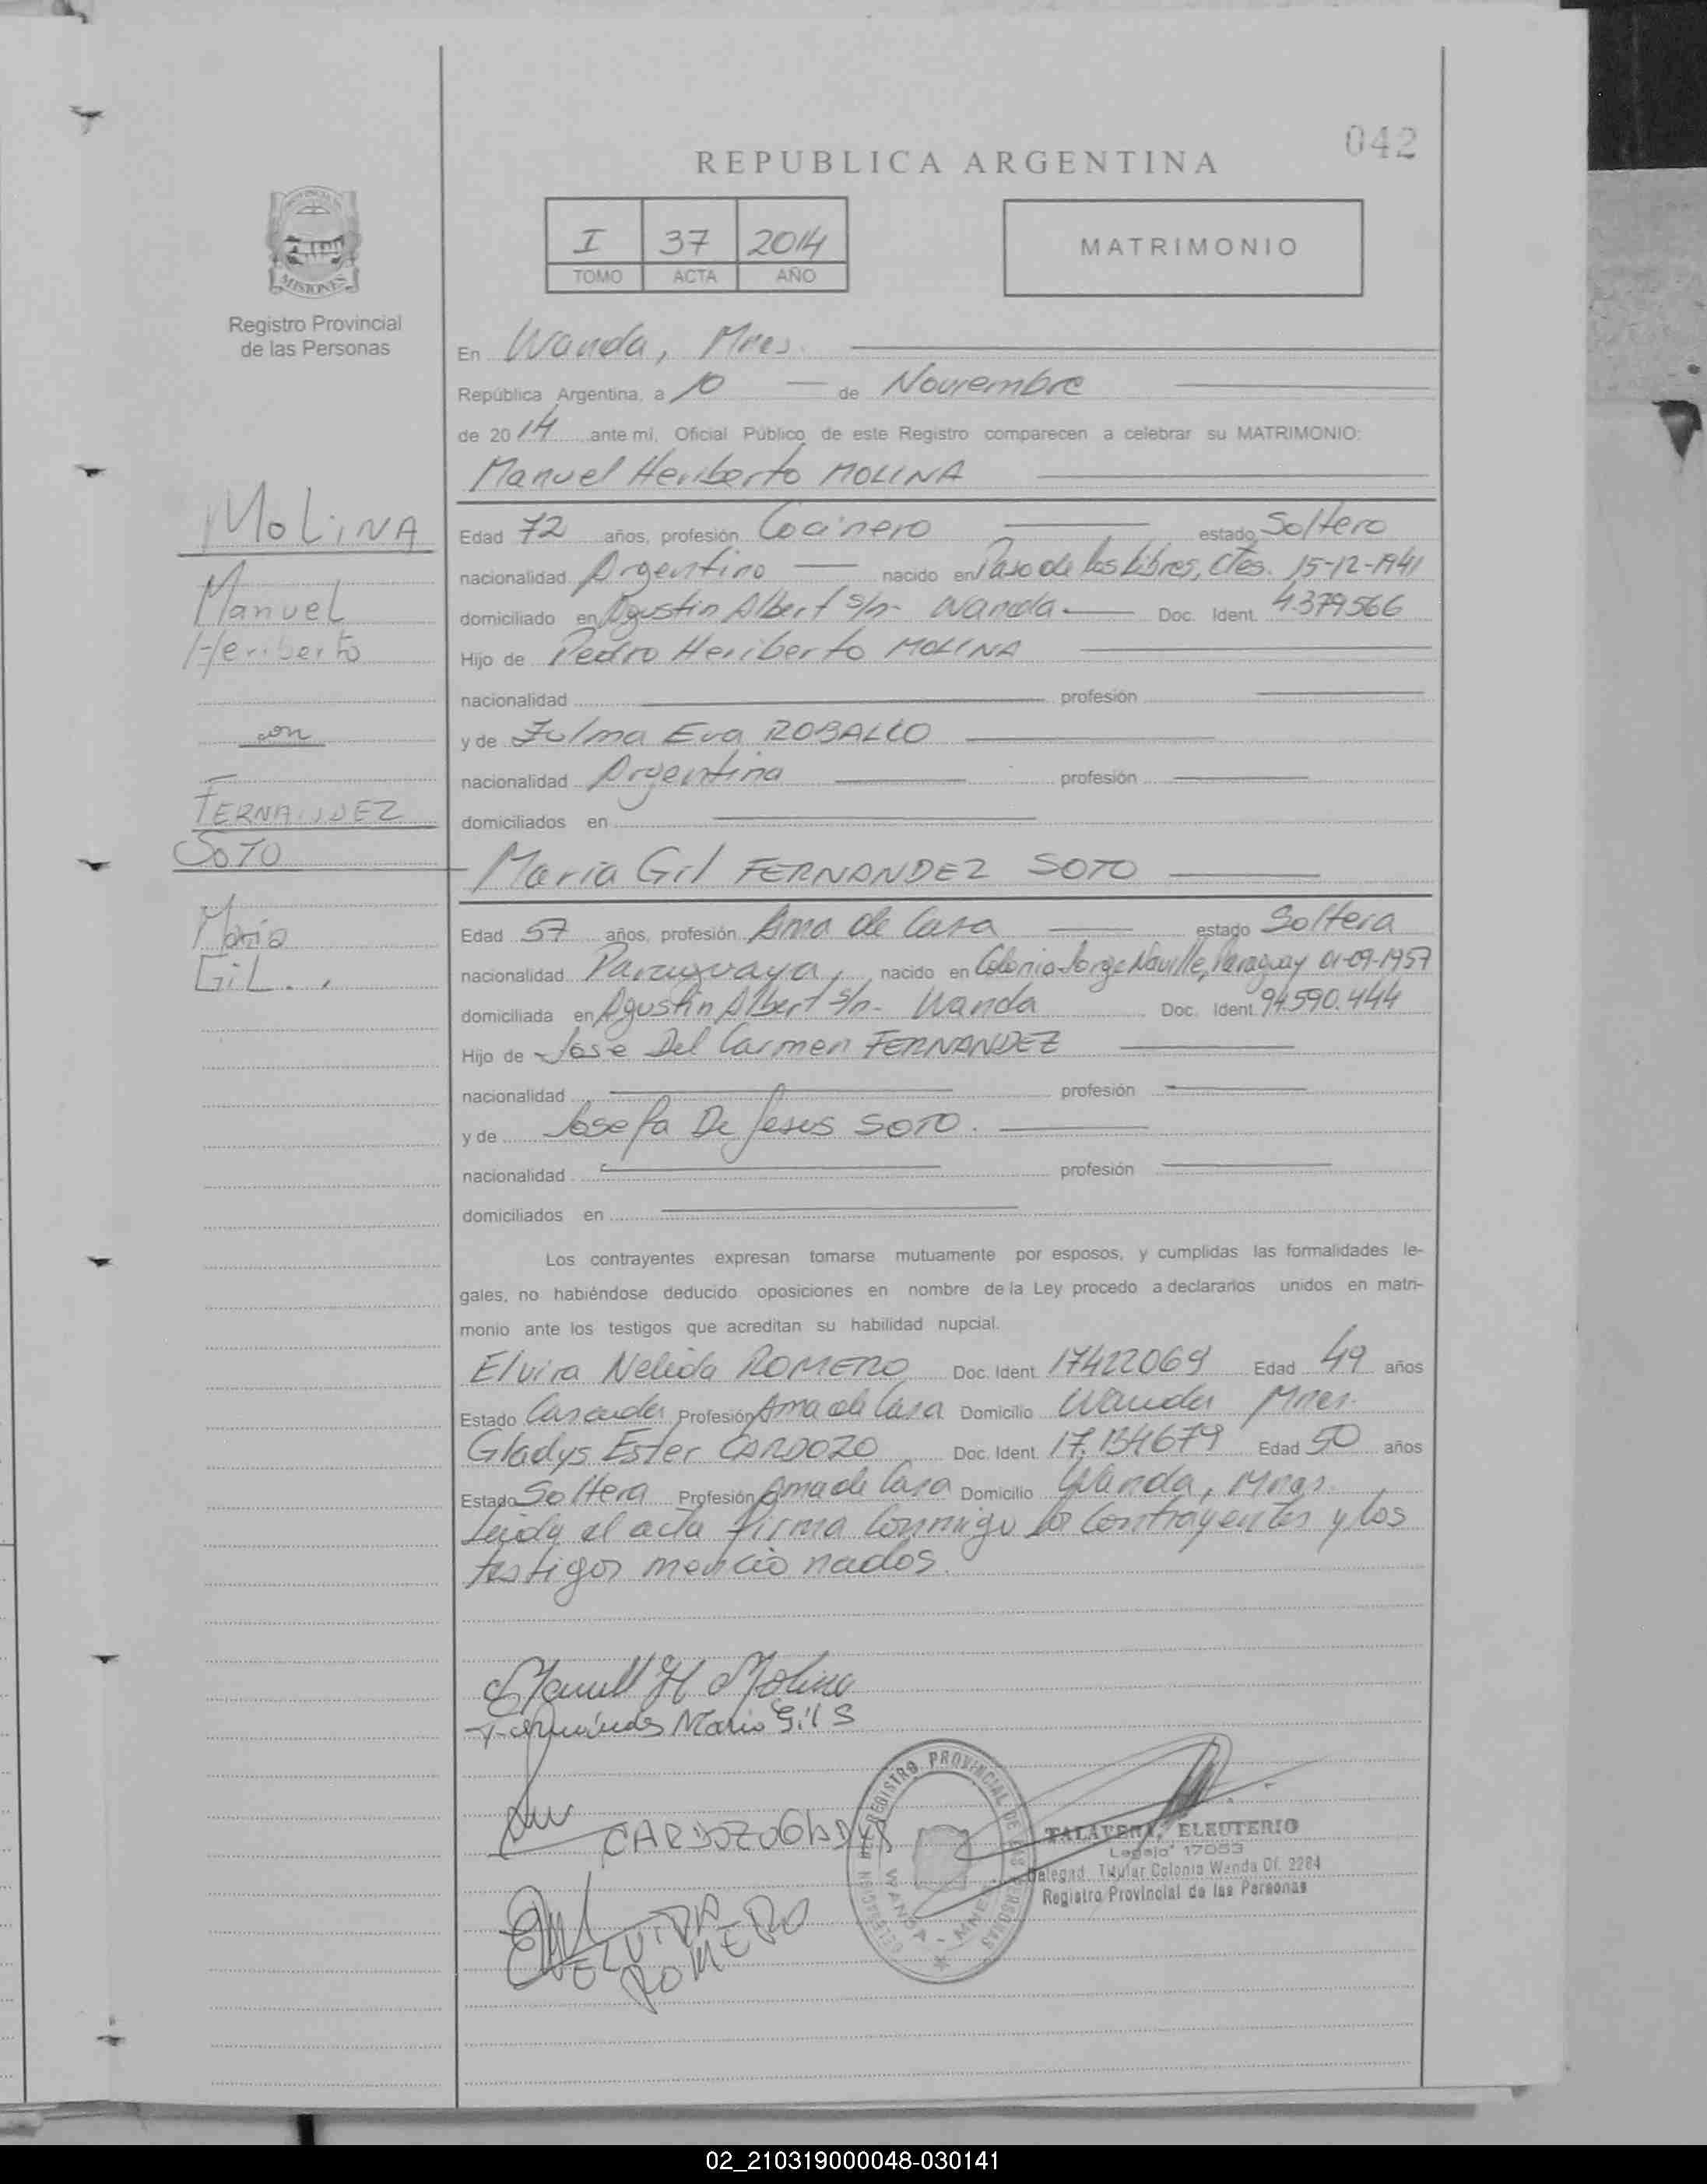 042
REPUBLICA ARGENTINA
I 37 2014
TOMO ACTA AÑO
MATRIMONIO
MISIONES
Registro Provincial
de las Personas
En Wanda, Mnes.
República Argentina, a 10 de Noviembre
de 2014 ante mi, Oficial Público de este Registro comparecen a celebrar su MATRIMONIO:
Manuel Heriberto MOLINA
Edad 72 años, profesión Cocinero estado Soltero
nacionalidad Argentino nacido en Paso de los Libres, Ctes. 15-12-1941
domiciliado en Agustin Albert s/n- Wanda Doc. Ident. 4.379.566
Hijo de Pedro Heriberto MOLINA
nacionalidad profesión
y de Zulma Eva ROBALLO
nacionalidad Argentina profesión
domiciliados en
Maria Gil FERNANDEZ SOTO
Edad 57 años, profesión Ama de Casa estado Soltera
nacionalidad Paraguaya, nacido en Colonia Jorge Naville, Paraguay 01-09-1957
domiciliada en Agustin Albert s/n- Wanda Doc. Ident. 94.590.444
Hijo de Jose Del Carmen FERNANDEZ
nacionalidad profesión
y de Josefa De Jesus SOTO.
nacionalidad profesión
domiciliados en
Los contrayentes expresan tomarse mutuamente por esposos, y cumplidas las formalidades le-
gales, no habiéndose deducido oposiciones en nombre de la Ley procedo a declararlos unidos en matri-
monio ante los testigos que acreditan su habilidad nupcial.
Elvira Nelida ROMERO Doc. Ident. 17422069 Edad 49 años
Estado Casada Profesión Ama de Casa Domicilio Wanda Mnes.
Gladys Ester CARDOZO Doc. Ident. 17.134679 Edad 50 años
Estado Soltera Profesión Ama de Casa Domicilio Wanda, Mnes.
Leida el acta firma conmigo los contrayentes y los
testigos mencionados.
MOLINA
Manuel
Heriberto
con
FERNANDEZ
SOTO
Maria
Gil.
Manuel H Molina
Fernández Maria Gil S
CARDOZO GLADYS
ELVIRA
ROMERO
REGISTRO PROVINCIAL DE LAS PERSONAS
WANDA - MNES
TALAVERA, ELEUTERIO
Legajo 17053
Delegad. Titular Colonia Wanda Of. 2284
Registro Provincial de las Personas
02_210319000048-030141